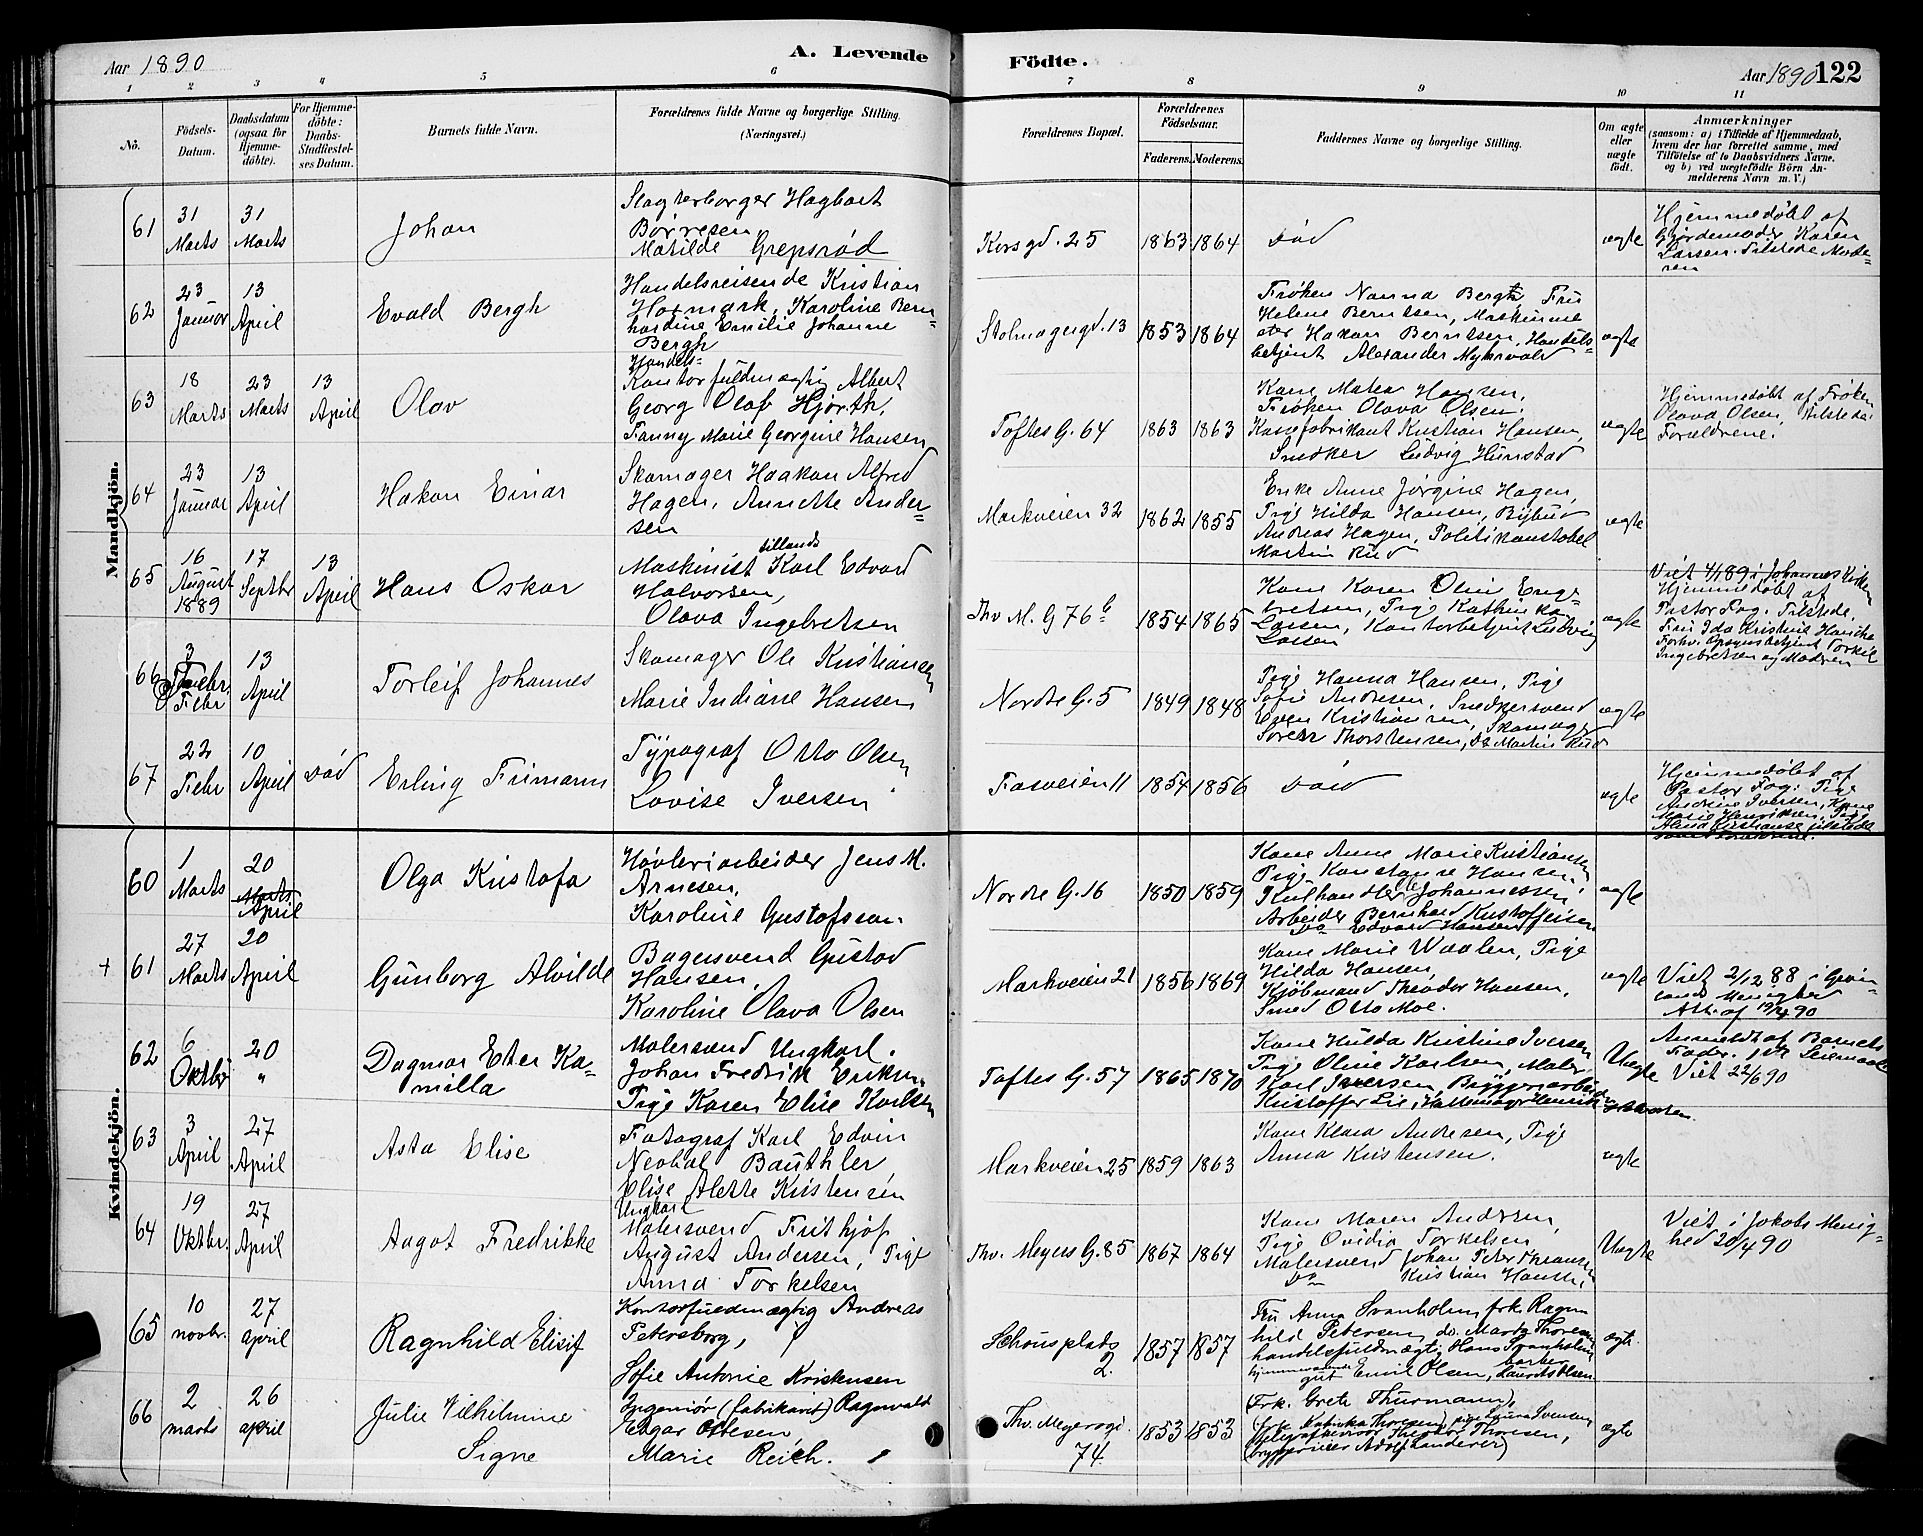 Aar 1890
A. Levende Födte.
Aar 1890 122
1 2 3 4 5 6 7 8 9 10 11
No.
Födsels-Datum.
Daabsdatum (ogsaa for Hjemme-döbte).
For Hjemme-döbte: Daabs-Stadfæstel-ses Datum.
Barnets fulde Navn.
Forældrenes fulde Navne og borgerlige Stilling.
(Næringsvei.)
Forældrenes Bopæl.
Forældrenes Födselsaar.
Faderens. Moderens.
Faddernes Navne og borgerlige Stilling.
Om ægte eller uægte födt.
Anmærkninger
(saasom: a) i Tilfælde af Hjemmedaab, hvem der har forrettet samme, med Tilföielse af to Daabsvidners Navne, og b) ved uægtefödte Börn Anmelderens Navn m. V.)
Mandkjön.
61 31 Marts 31 Marts Johan
Slagterborger Hagbart
Börresen
Matilde Grepsröd
Korsgd. 25 1863 1864 Död ægte
Hjemmedöbt af
Gjordemoder Karen
Larsen. Tilstede Mode-
ren
62 23 Januar 13 April Evald Bergh
Handelsreisende Kristian
Hormark, Karoline Bern-
hardine Emilie Johanne
Bergh
Stolmagergd. 13 1853 1864
Fröken Nanna Bergh, Fru
Helene Berntsen, Maskinme
ster Hakon Berntsen, Handels-
betjent Alexander Myhrvold
ægte
63 18 Marts 23 Marts 13 April Olav
Handels-
Kontorfuldmægtig Albert
Georg Olaf Hjorth,
Fanny Marie Georgine Hansen
Toftes G. 64 1863 1863
Kone Matea Hansen,
Fröken Olava Olsen.
Kassefabrikant Kristian Hansen,
Snedker Ludvig Hunstad
ægte
Hjemmedöbt af Fröken
Olava Olsen, tilstede:
Forældrene.
64 23 Januar 13 April Hakon Einar
Skomager Haakon Alfred
Hagen, Annette Ander-
sen
Markveien 32 1862 1855
Enke Anne Jörgine Hagen,
Pige Hilda Hansen, Bybud
Andreas Hagen, Politikonstabel
Martin Rud
ægte
65 16 August 1889 17 Septbr 13 April Hans Oskar
tillands
Maskinist Karl Edvard
Halvorsen,
Olava Ingebretsen
Thv M. G 76 b 1854 1865
Kone Karen Olin Enge-
bretsen, Pige Kathinka
Larsen, Kontorbetjent Ludvig
Larsen
ægte
Viet 4/1 89 i Johannes Kirken
Hjemmedöbt af
Pastor Fog. Tilstede,
Fru Ida Kristine Hansche
Forhv. Opsynsbetjent Torkil
Ingebretsen og Moderen
66 3 Febr. Febr 13 April Torleif Johannes
Skomager Ole Kristiansen
Marie Indiane Hansen
Nordre G. 5 1849 1848
Pige Hanna Hansen, Pige
Sofie Andresen, Snedkersvend
Even Kristiansen, Skomager
Soren Thorstensen, do Martin Rud
ægte
67 22 Febr 10 April Död Erling Frimann
Typograf Otto Olsen
Lovise Iversen
Fosveien 11 1854 1856 Död ægte
Hjemmedöbt af
Pastor Fog. Pige
Andrine Iversen, Kone
Marie Henriksen, Pige
Alma Kristianse tilstede
Kvindekjön.
60 1 Marts 20 Marts April Olga Kristofa
Hövleriarbeider Jens M.
Arnesen,
Karoline Gustafsson.
Nordre G. 16 1850 1859
Kone Anne Marie Kristiansen
Pige Konstanse Hansen,
Kulhandler Johannessen
Arbeider Bernhard Kristoffersen
Do Edvard Hansen
ægte
+ 61 27 Marts 20 April Gunborg Alvilde
Bagersvend Gustav
Hansen,
Karoline Olava Olsen
Markveien 21 1856 1869
Kone Marie Waalen, Pige
Hilda Hansen,
Kjöbmand Theodor Hansen,
Smed Otto Moe.
ægte
Viet 2/12 88 i Grön-
lands Menighed
Att. af 19/4 90
62 6 Oktbr 20 " Dagmar Ester Ka-
milla
Malersvend Ungkarl.
Johan Fredrik Eriksen
Pige Karen Elise Karlsen
Toftes G. 57 1865 1870
Kone Hilda Kristine Iversen
Pige Oline Karlsen, Maler
Karl Iversen, Bryggeriarbeider
Kristoffer Lie, Hattemager Henrik
Uægte
Anmeldt af Barnets
Fader. 1ste Leiermaal
Viet 22/6 90
63 3 April 27 April Asta Elise
Fotograf Karl Edvin
Neobal Bauthler
Elise Alette Kristensen
Markveien 25 1859 1863
Kone Klara Andresen, Pige
Anna Kristensen.
ægte
64 19 Oktbr. 27 April Aagot Fredrikke
Ungkarl
Malersvend Frithjof
August Andersen, Pige
Anna Torkelsen
Thv. Meyers G. 85 1867 1864
Kone Maren Andersen,
Pige Ovidia Torkelsen
Malersvend Johan Peter Thransen
Do Kristian Hansen,
Uægte
Viet i Jakobs Menig-
hed 20/4 90
65 10 novbr. 27 april Ragnhild Elisif
Kontorfuldmægtig Andreas
Petersborg,
Sofie Antonie Kristensen
Schousplads
2. 1857 1857
Fru Anna Svanholm, frk. Ragn
hild Petersen, do. Marty Thoresen
handelsfuldmægtig Hans Svanholm
Emil Olsen, barber Laurits Olsen
ægte.
66 2 marts 26 april Julie Vilhelmine
Signe
Ingeniör (fabrikant) Ragnvald
Edgar Ottesen
Marie Reich.
Thv. Meyersgd.
74. 1853 1853
(Frk. Grete Thurmann),
(frk. Katinka Thoresen), pige Laura Svensen,
telegrafrevisor Theodor Thoresen,
(bryggerieier Adolf Landerer)
ægte